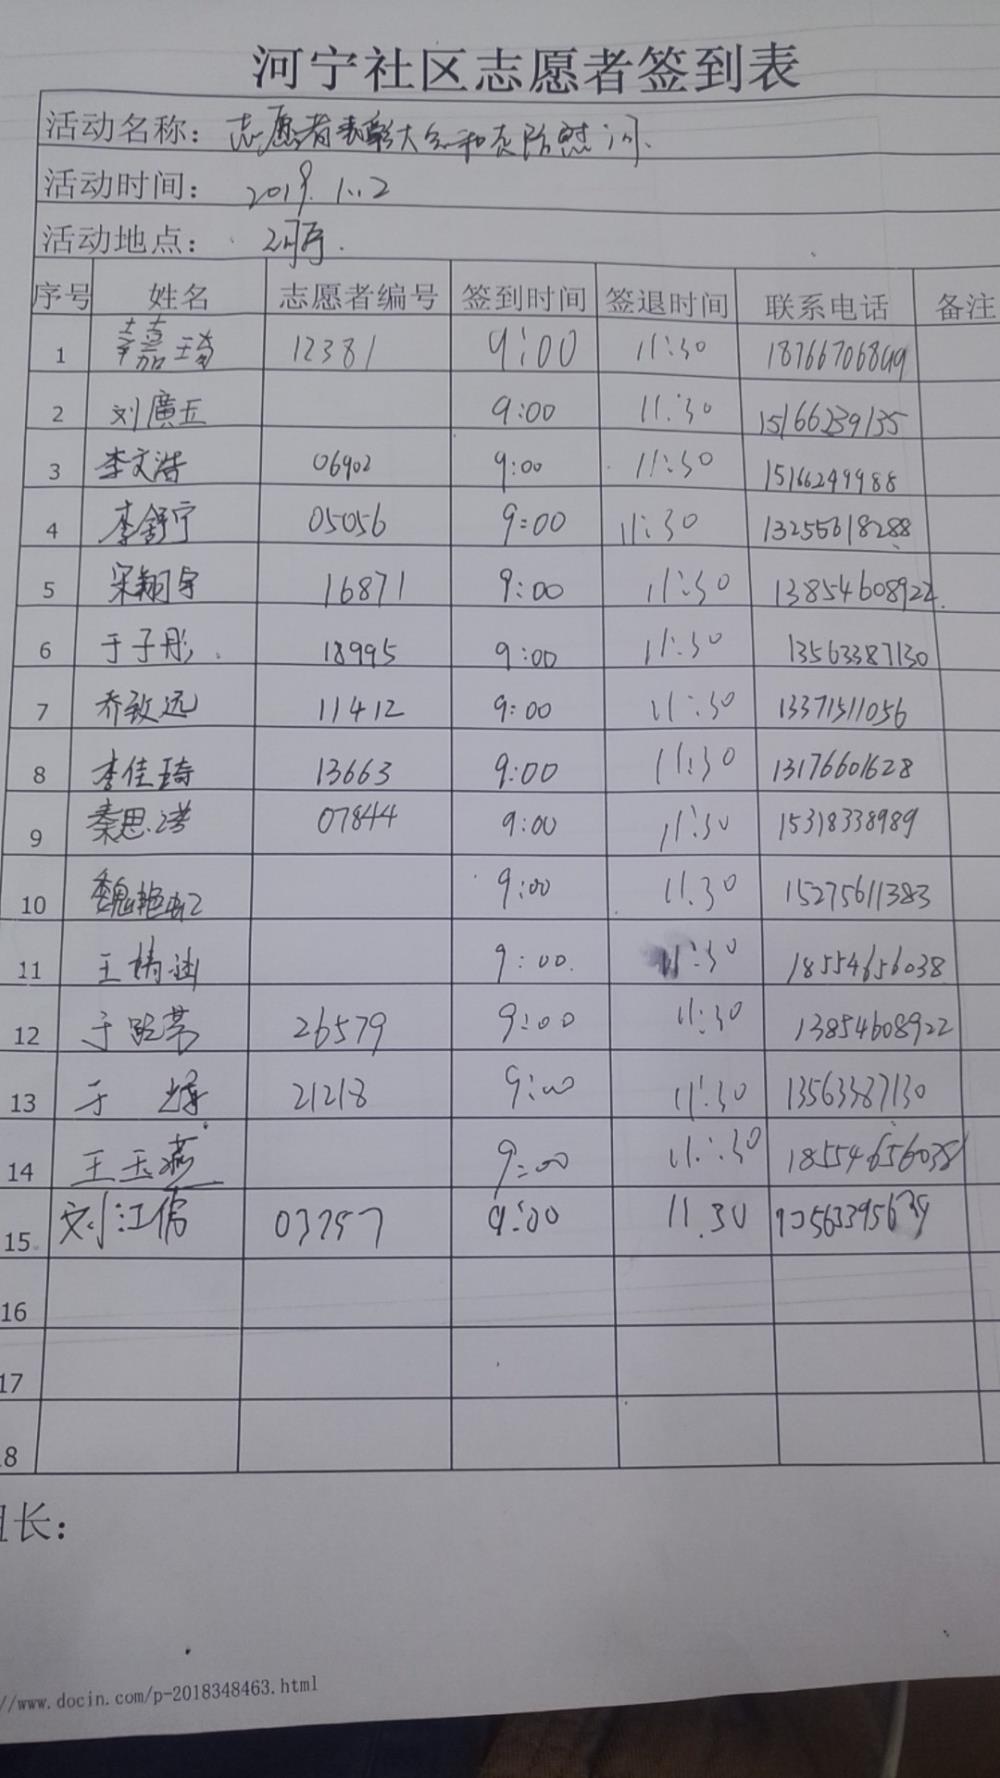 河宁社区志愿者签到表
活动名称：志愿者表彰大会和慰问.
活动时间：2019.1.12
活动地点：河宁.
序号 姓名 志愿者编号 签到时间 签退时间 联系电话 备注
1 嘉琦 12381 9:00 11:30 18766706899
2 刘廣五 9:00 11:30 15166239135
3 李文浩 06902 9:00 11:30 15166249988
4 李舒宁 05056 9:00 11:30 13255618288
5 宋翔宇 16871 9:00 11:30 13854608922
6 于子彤 18995 9:00 11:30 13563387130
7 乔致远 11412 9:00 11:30 13371511056
8 李佳琦 13663 9:00 11:30 13176601628
9 秦思 07844 9:00 11:30 15318338989
10 魏艳虹 9:00 11:30 15275611383
11 王精涵 9:00 11:30 18554656038
12 于 26579 9:00 11:30 13854608922
13 于 21218 9:00 11:30 13563387130
14 王玉燕 9:00 11:30 18554656038
15 刘江儒 9:00 11.30
16
17
8
长：
//www.docin.com/p-2018348463.html